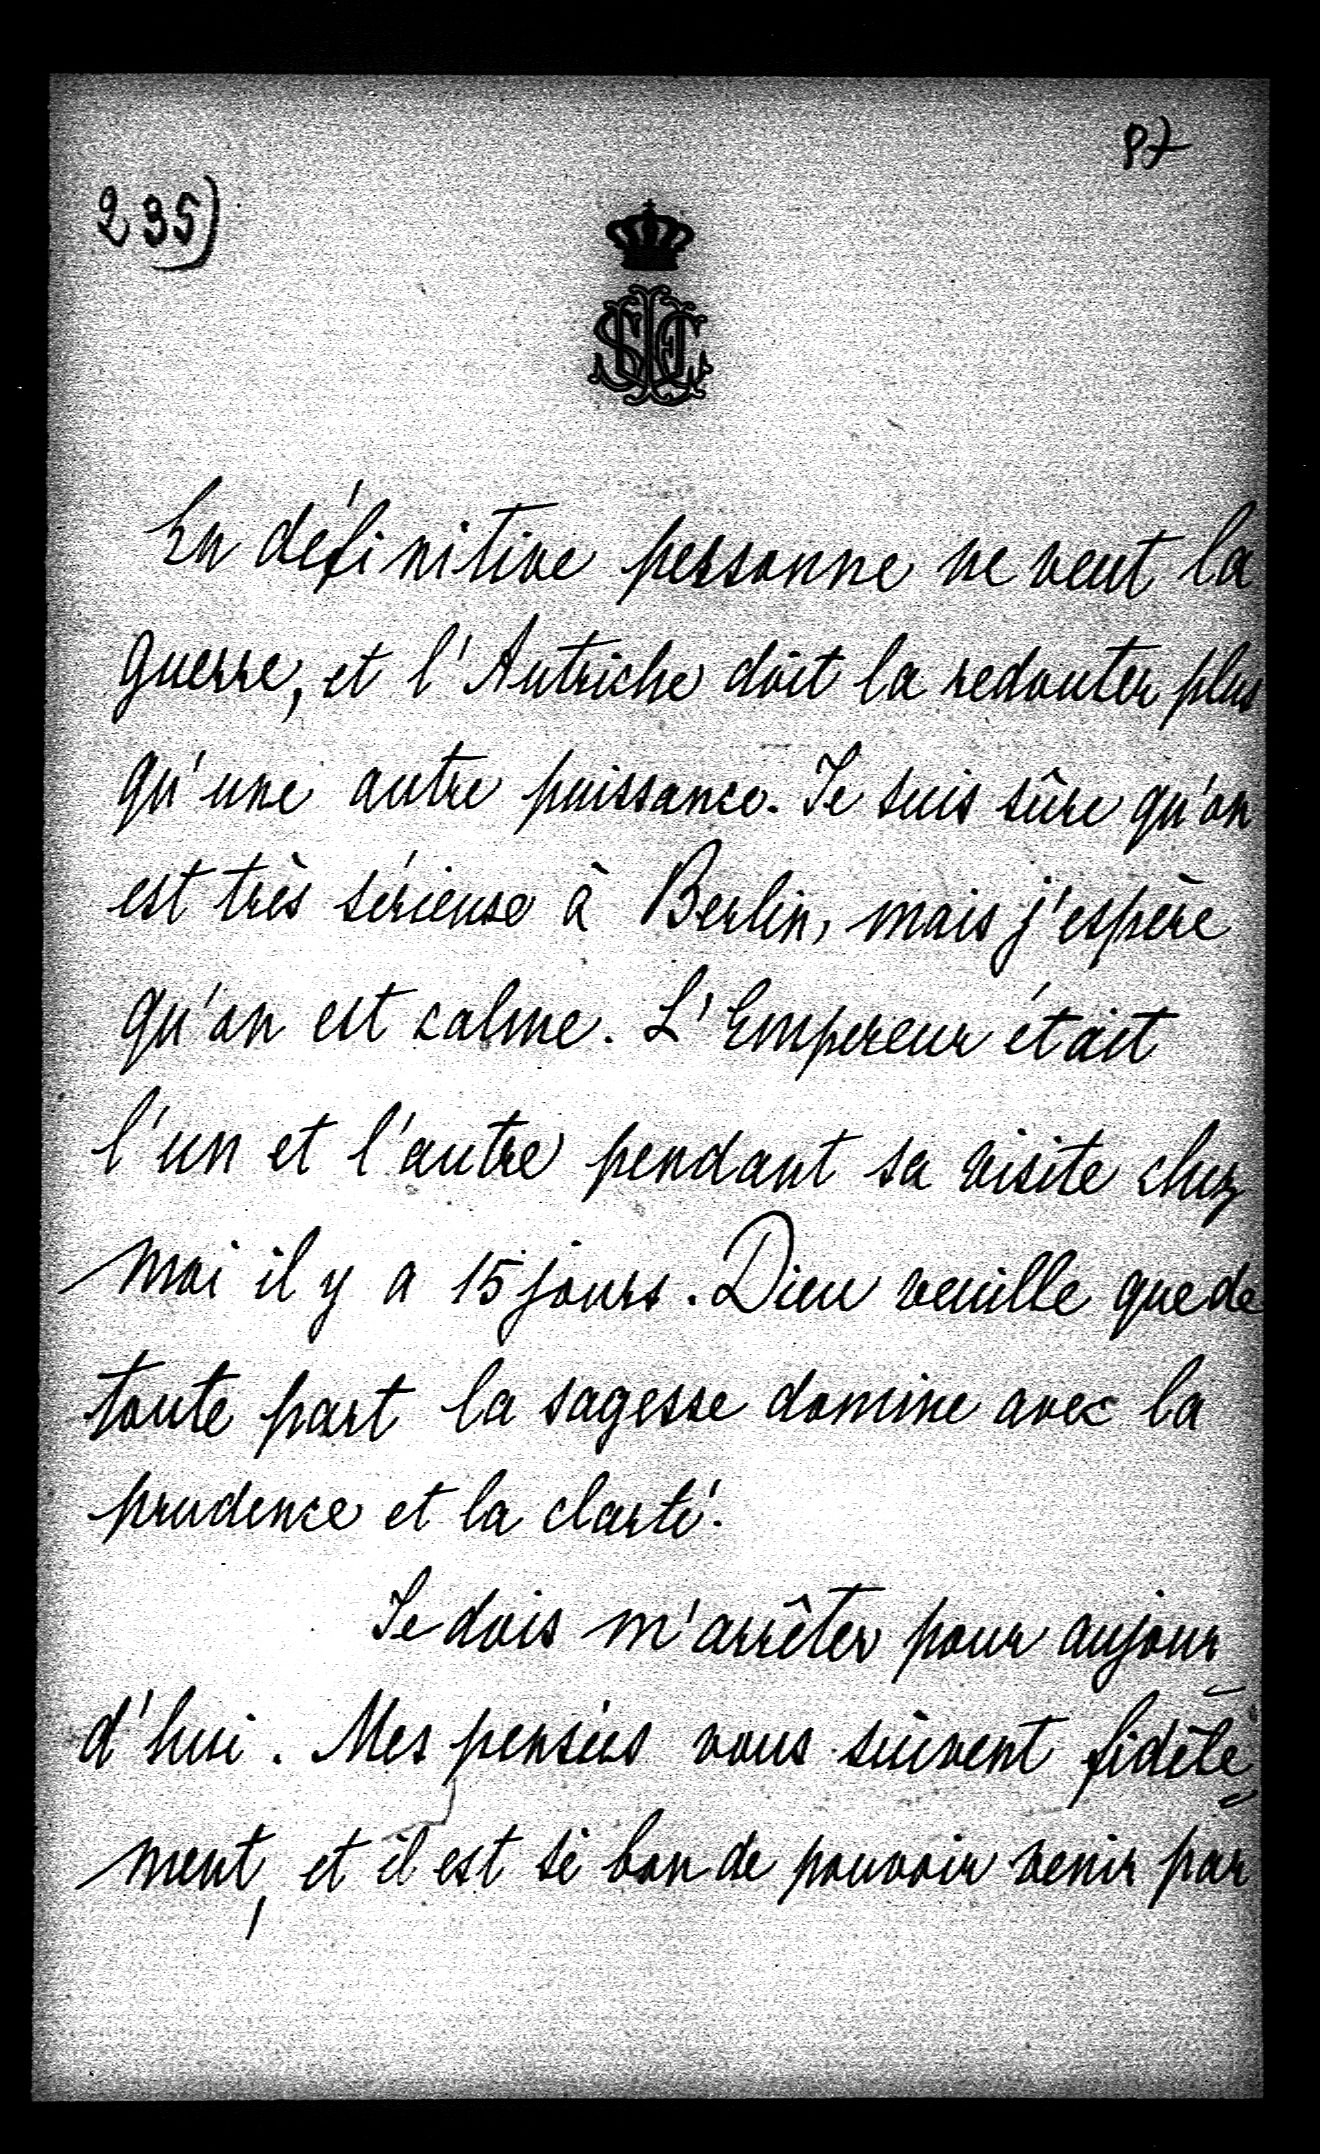 P7
235)
En définitive personne ne veut la
guerre, et l'Autriche doit la redouter plus
qu'une autre puissance. Je suis sûre qu'on
est très sérieuse à Berlin, mais j'espère
qu'on est calme. L'Empereur était
l'un et l'autre pendant sa visite chez
moi il y a 15 jours. Dieu veuille que de
toute part la sagesse domine avec la
prudence et la clarté.
Je dois m'arrêter pour aujour
d'hui. Mes pensées vous suivent fidèle
ment, et il est si bon de pouvoir venir par